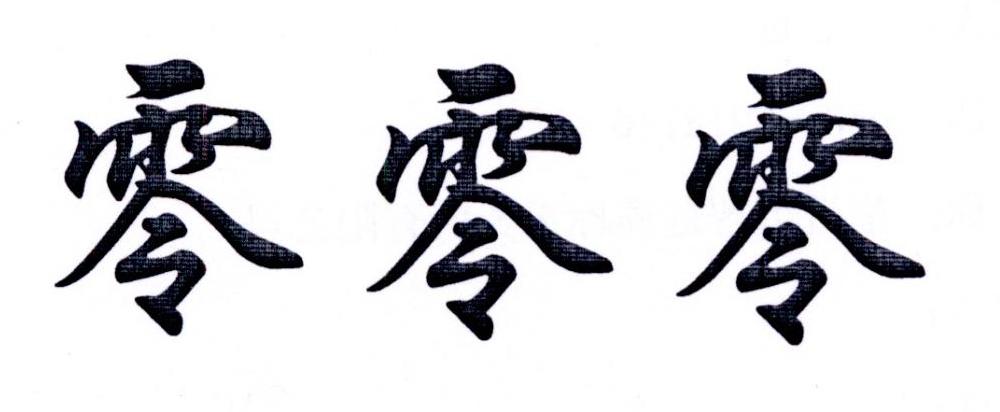 零零零